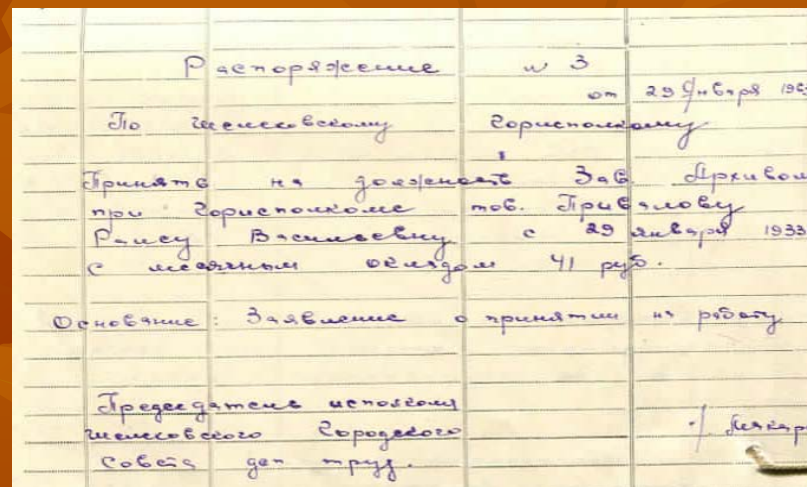 Распоряжение № 3
от 29 Января 196
По Шелеховскому Горисполкому
Принять на должность Зав. Архивом
при Горисполкоме тов. Привалову
Раису Васильевну с 29 января 1933
с месячным окладом 41 руб.
Основание: Заявление о принятии на работу
Председатель исполкома
Шелеховского Городского
Совета деп труд.